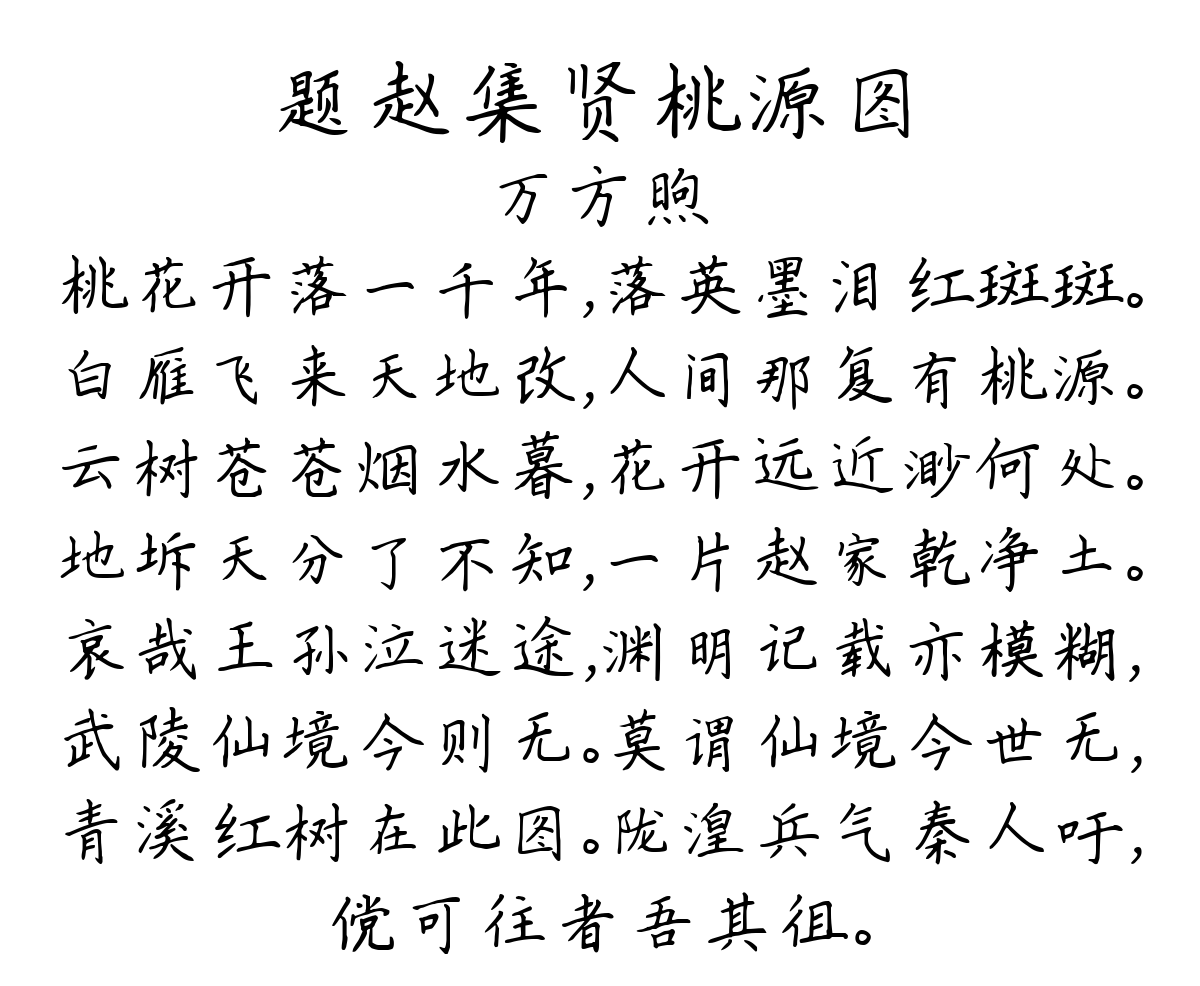 题赵集贤桃源图
万方煦
桃花开落一千年,落英墨泪红斑斑。
白雁飞来天地改,人间那复有桃源。
云树苍苍烟水暮,花开远近渺何处。
地坼天分了不知,一片赵家乾净土。
哀哉王孙泣迷途,渊明记载亦模糊,
武陵仙境今则无。莫谓仙境今世无,
青溪红树在此图。陇湟兵气秦人吁,
傥可往者吾其徂。